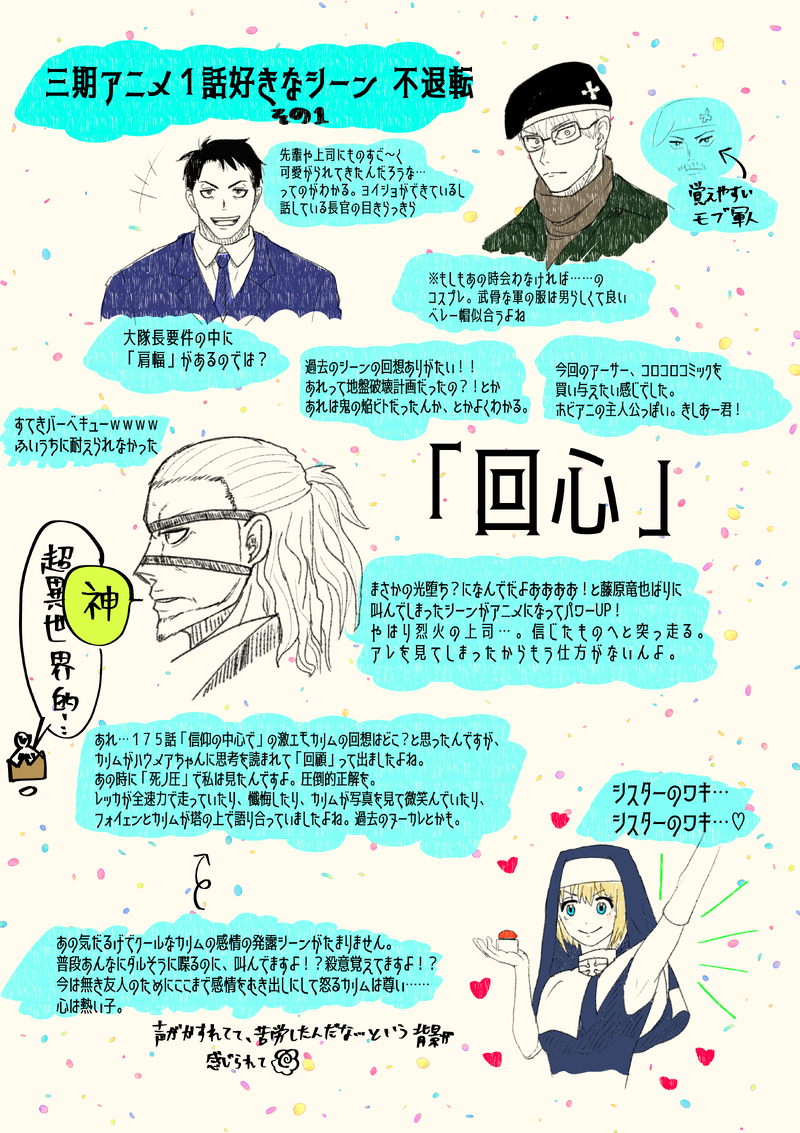 三期アニメ1話好きなシーン 不退転
その1
先輩や上司にものすご〜く
可愛がられてきたんだろうな…
ってのがわかる。ヨイショができているし
話している長官の目きらっきら
覚えやすい
モブ軍人
※もしもあの時会わなければ……の
コスプレ。武骨な軍の服は男らしくて良い
ベレー帽似合うよね
大隊長要件の中に
「肩幅」があるのでは?
過去のシーンの回想ありがたい!!
あれって地盤破壊計画だったの?!とか
あれは鬼の焔ビトだったんか、とかよくわかる。
今回のアーサー、コロコロコミックを
買い与えたい感じでした。
ホビアニの主人公っぽい。きしおー君!
すてきバーベキューwwww
ふいうちに耐えられなかった
「回心」
神
超異世界的!…
まさかの光堕ち?になんでだよああああ!と藤原竜也ばりに
叫んでしまったシーンがアニメになってパワーUP!
やはり烈火の上司…。信じたものへと突っ走る。
アレを見てしまったからもう仕方がないんよ。
あれ…175話「信仰の中心で」の激エモカリムの回想はどこ?と思ったんですが、
カリムがハウメアちゃんに思考を読まれて「回顧」って出ましたよね。
あの時に「死ノ圧」で私は見たんですよ。圧倒的正解を。
レッカが全速力で走っていたり、懺悔したり、カリムが写真を見て微笑んでいたり、
フォイェンとカリムが塔の上で語り合っていましたよね。過去のヌーカレとかも。
シスターのワキ…
シスターのワキ…♡
あの気だるげでクールなカリムの感情の発露シーンがたまりません。
普段あんなにダルそうに喋るのに、叫んでますよ!?殺意覚えてますよ!?
今は無き友人のためにここまで感情をむき出しにして怒るカリムは尊い……
心は熱い子。
声がかすれてて、苦労したんだな…という背景が
感じられて